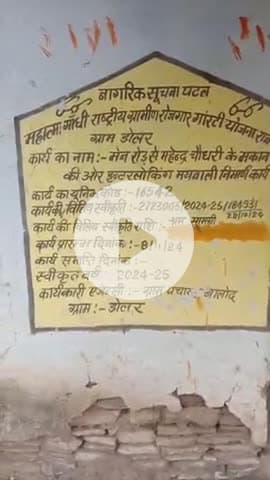 नागरिक सूचना पटल
महात्मा गांधी राष्ट्रीय ग्रामीण रोजगार गारंटी योजना
ग्राम डोलर
कार्य का नाम :- मेन रोड से महेन्द्र चौधरी के मकान
की ओर इन्टरलोकिंग मयनाली निर्माण कार्य
कार्य का यूनिक कोड :- 16542
कार्य की वित्तिय स्वीकृति :- 2024-25
28/10/24
कार्य की वित्तिय स्वीकृत राशि :- श्रम सामग्री
कार्य प्रारम्भ दिनांक :-
कार्य समाप्ति दिनांक :-
स्वीकृत वर्ष 2024-25
कार्यकारी एजेन्सी :- ग्राम पंचायत
ग्राम :- डोलर